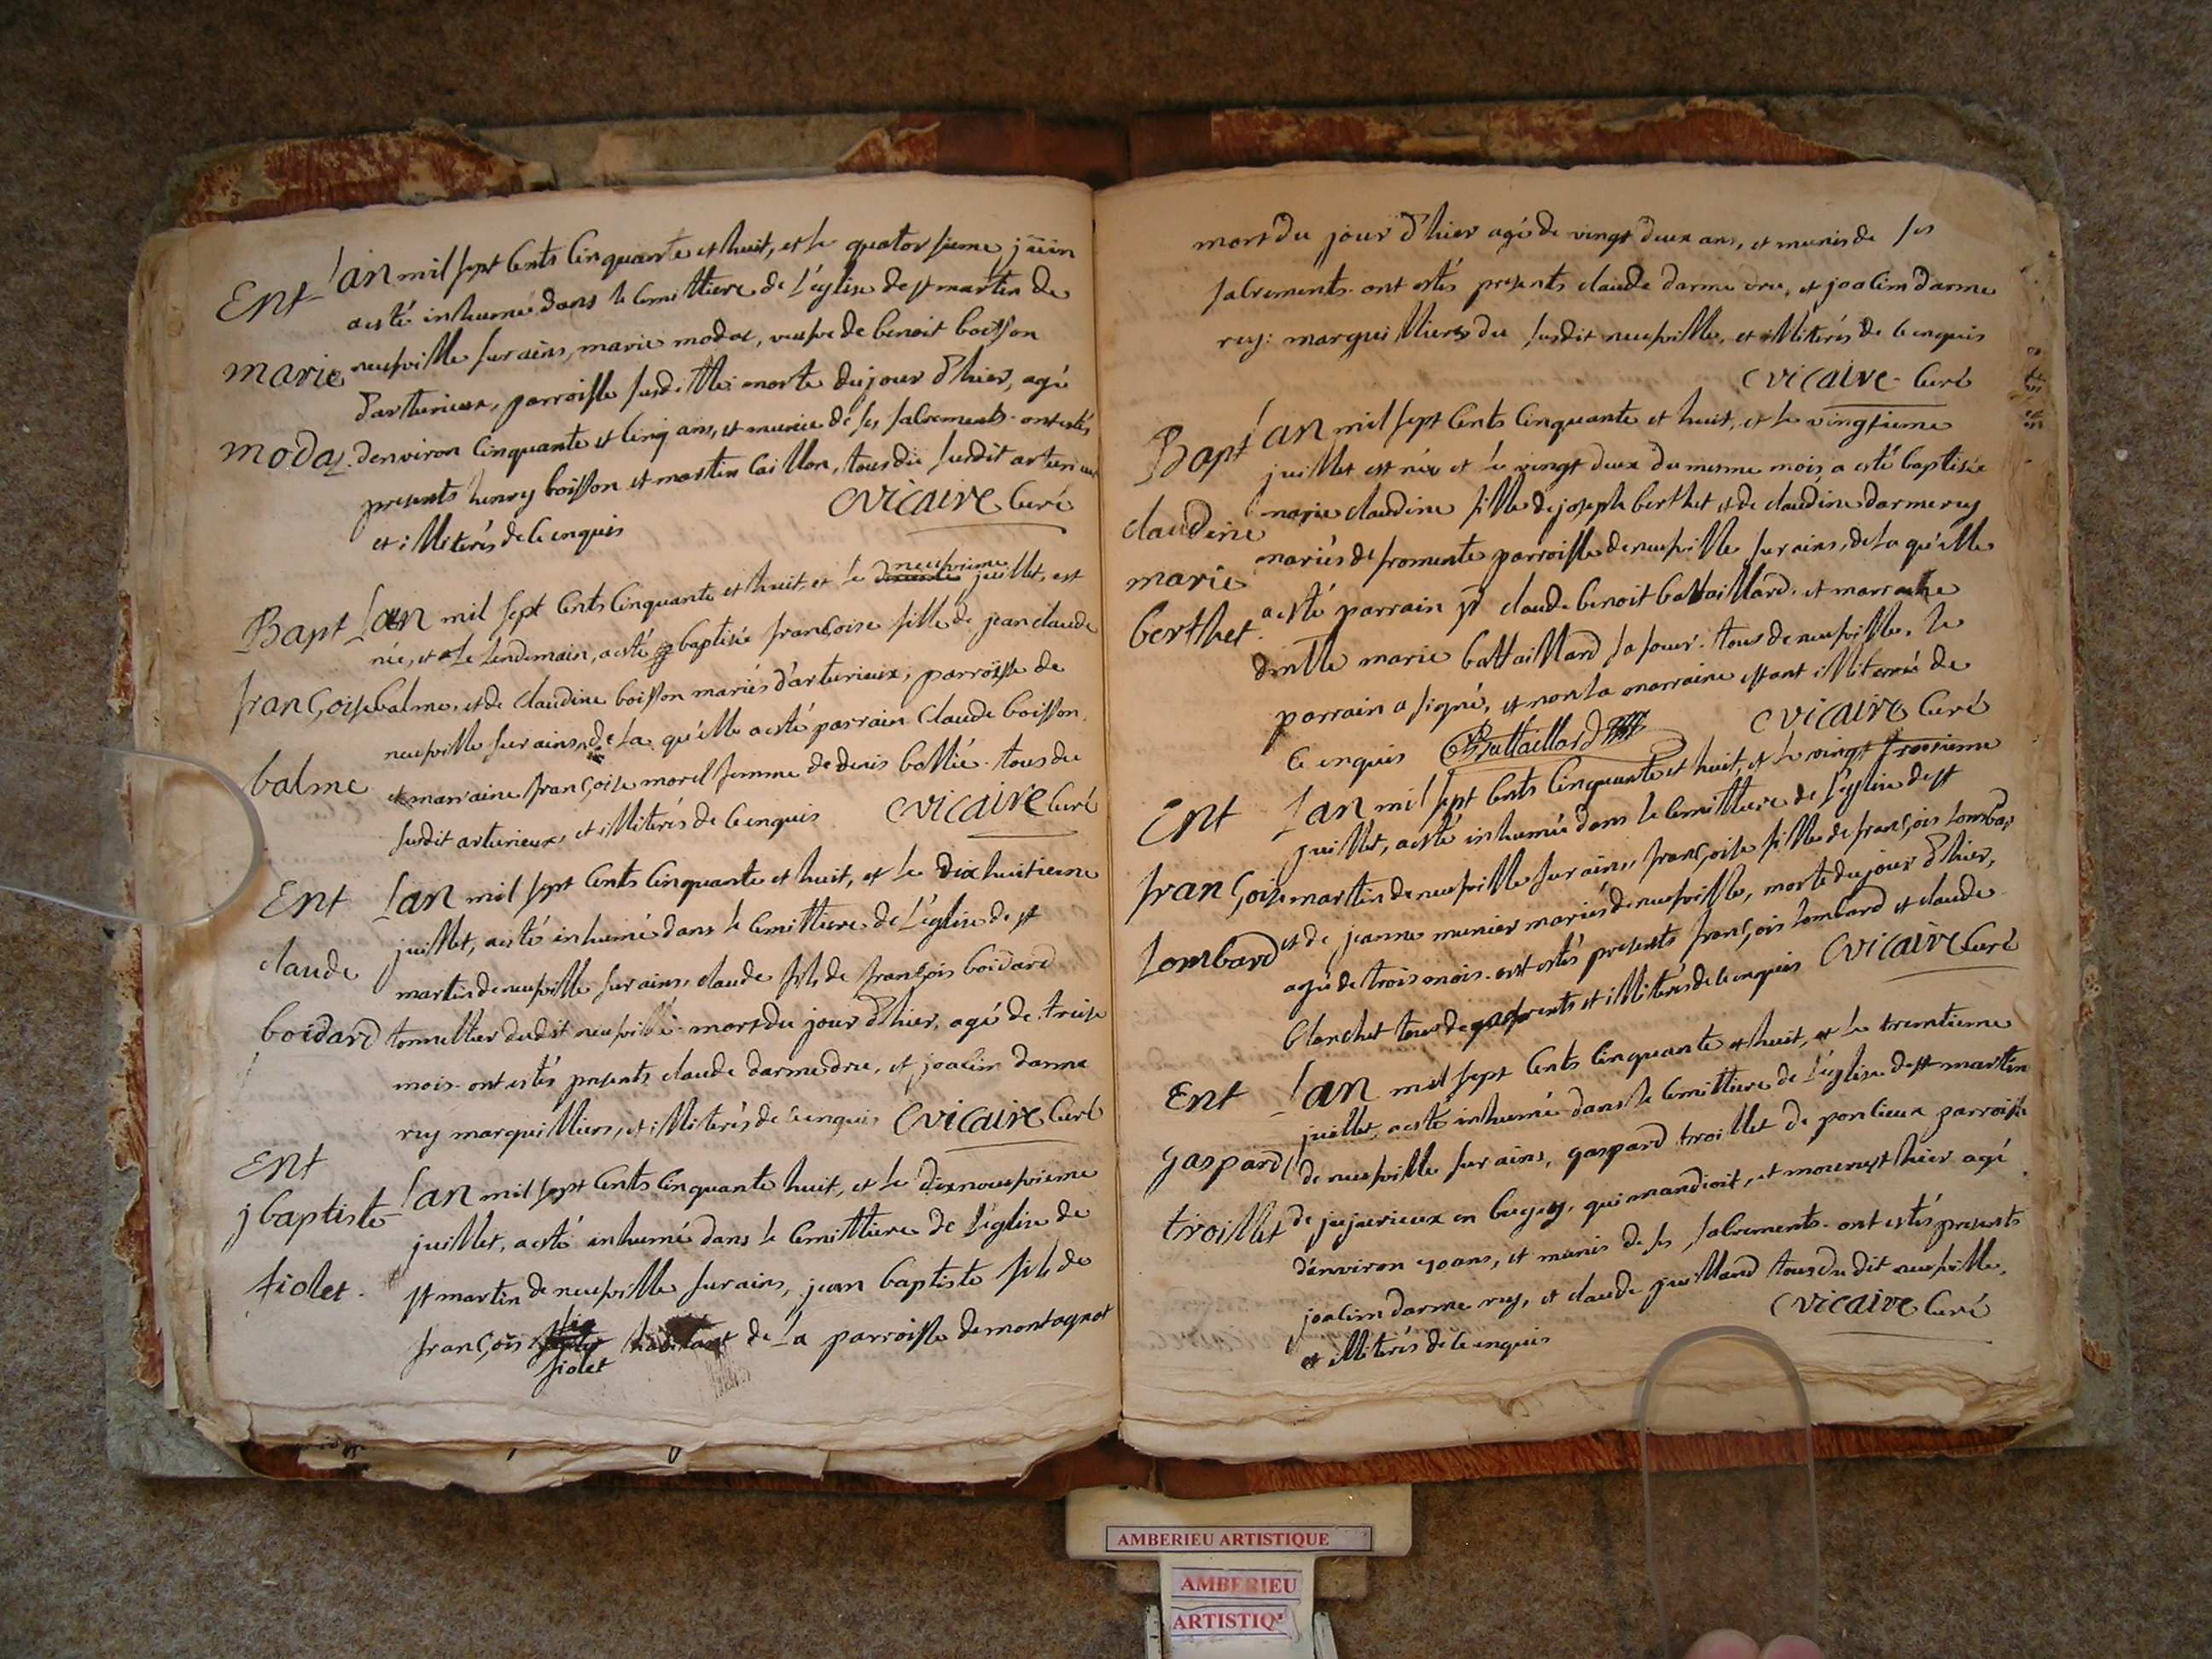 Ent L'an mil sept cents cinquante et huit, et le quatorsieme juin
a esté inhumé dans le cemittiere de l'église de st martin de
marie neufville sur ains, marie modas, veufve de benoit boisson
d'arturieux, parroisse susditte morte du jour d'hier, agé
modas. d'environ cinquante et cinq ans, et munie de ses sacrements. ont estés
presents henry boisson et martin caillon, tous du susdit arturieux
et illiterés de ce enquis Cvicaire Curé
Bapt L'an mil sept cents cinquante et huit, et le neufvieme juillet, est
née, et le lendemain, a esté baptisée françoise fille de jean claude
françoise balme, et de claudine boisson mariés d'arturieux, parroisse de
neufville sur ains, de la qu'elle a esté parrain claude boisson,
balme et marraine françoise morel femme de denis bollié. tous du
susdit arturieux, et illiterés de ce enquis Cvicaire Curé
Ent L'an mil sept cents cinquante et huit, et le dix huitieme
juillet, a esté inhumé dans le cemittiere de l'église de st
claude martin de neufville sur ains, claude fils de françois boidard
boidard tonnellier dudit neufville. mort du jour d'hier, agé de treise
mois. ont estés presents claude darmedru, et joacim darme
rey marguilliers, et illiterés de ce enquis Cvicaire Curé
Ent
j baptiste L'an mil sept cents cinquante huit, et le dixneufvieme
juillet, a esté inhumé dans le cemittiere de l'église de
fiolet. st martin de neufville sur ains, jean baptiste fils de
françois fiolet habitant de la parroisse de montagnat
mort du jour d'hier agé de vingt deux ans, et munis de ses
sacrements. ont estés presents claude darmedru, et joacim darme
rey: marguilliers du susdit neufville, et illiterés de ce enquis
Cvicaire Curé
Bapt L'an mil sept cents cinquante et huit, et le vingtieme
juillet est née et le vingt deux du mesme mois, a esté baptisée
claudine marie claudine fille de joseph berthet et de claudine darmerey
marie mariés de fromente parroisse de neufville sur ains, de la qu'elle
berthet. a esté parrain sr claude benoit battaillard, et marraine
dmlle marie battaillard sa soeur. tous de neufville. le
parrain a signé, et non la marraine estant illiterée de
ce enquis Battaillard Cvicaire Curé
Ent L'an mil sept cents cinquante et huit, et le vingt troisieme
juillet, a esté inhumée dans le cemittiere de l'église de st
françoise martin de neufville sur ains, françoise fille de françois lombard
lombard et de jeanne munier mariés de neufville, morte du jour d'hier,
agée de trois mois. ont estés presents françois lombard et claude
blanchet tous deux parents et illiterés de ce enquis Cvicaire Curé
Ent L'an mil sept cents cinquante et huit, et le trentieme
juillet, a esté inhumé dans le cemittiere de l'église de st martin
gaspard de neufville sur ains, gaspard troillet de poncieux parroisse
troillet de jujurieux en bugey, qui mandioit, et mourust hier agé
d'environ 70 ans, et munis de ses sacrements. ont estés presents
joacim darmerey, et claude juillard tous du dit neufville,
et illiterés de ce enquis Cvicaire Curé
AMBERIEU ARTISTIQUE
AMBERIEU
ARTISTIQ